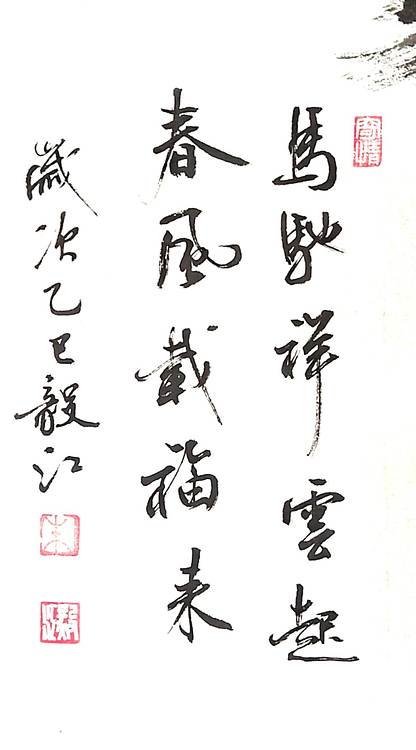 馬馳祥雲起
春風載福来
歲次乙巳毅江